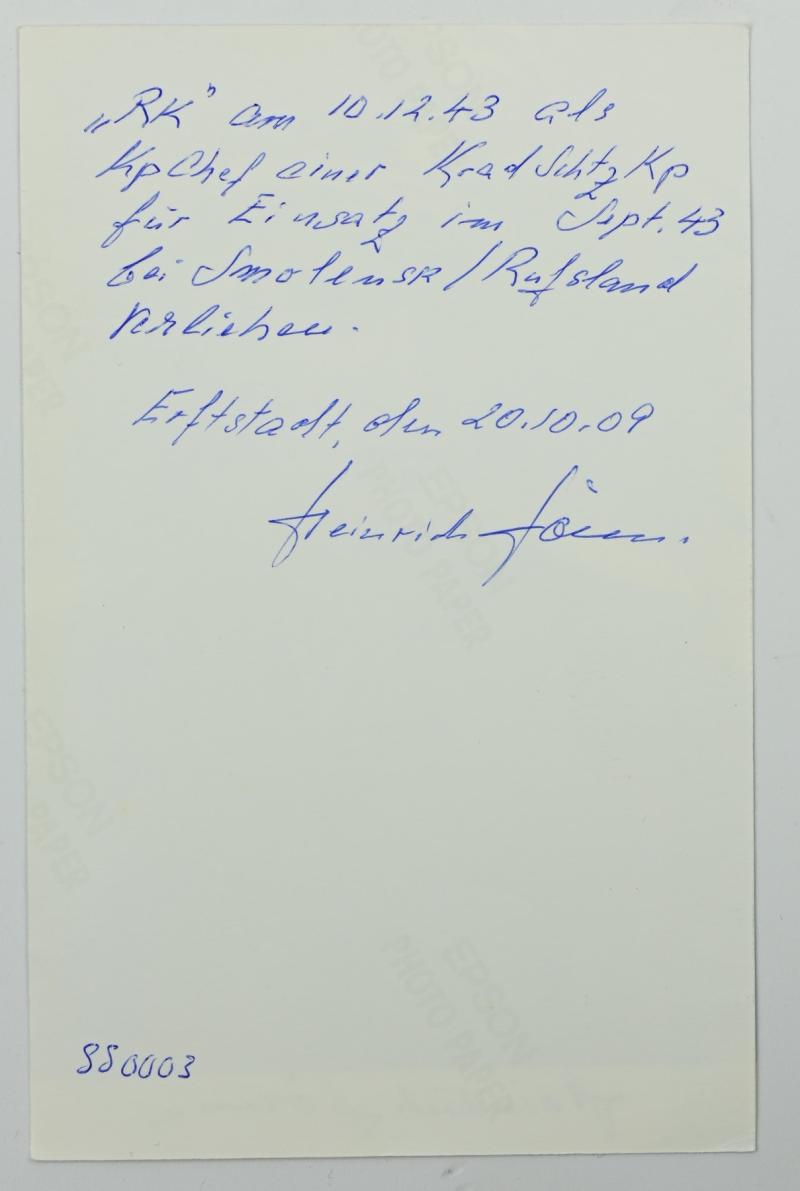 „RK” am 10.12.43 als
KpChef einer KradSchtzKp
für Einsatz im Sept. 43
bei Smolensk/Rußland
verliehen.
Erftstadt, den 20.10.09
Heinrich
880003
EPSON
PHOTO PAPER
EPSON
PAPER
EPSON
PHOTO PAPER
EPSON
PAPER
EPSON
PHOTO PAPER